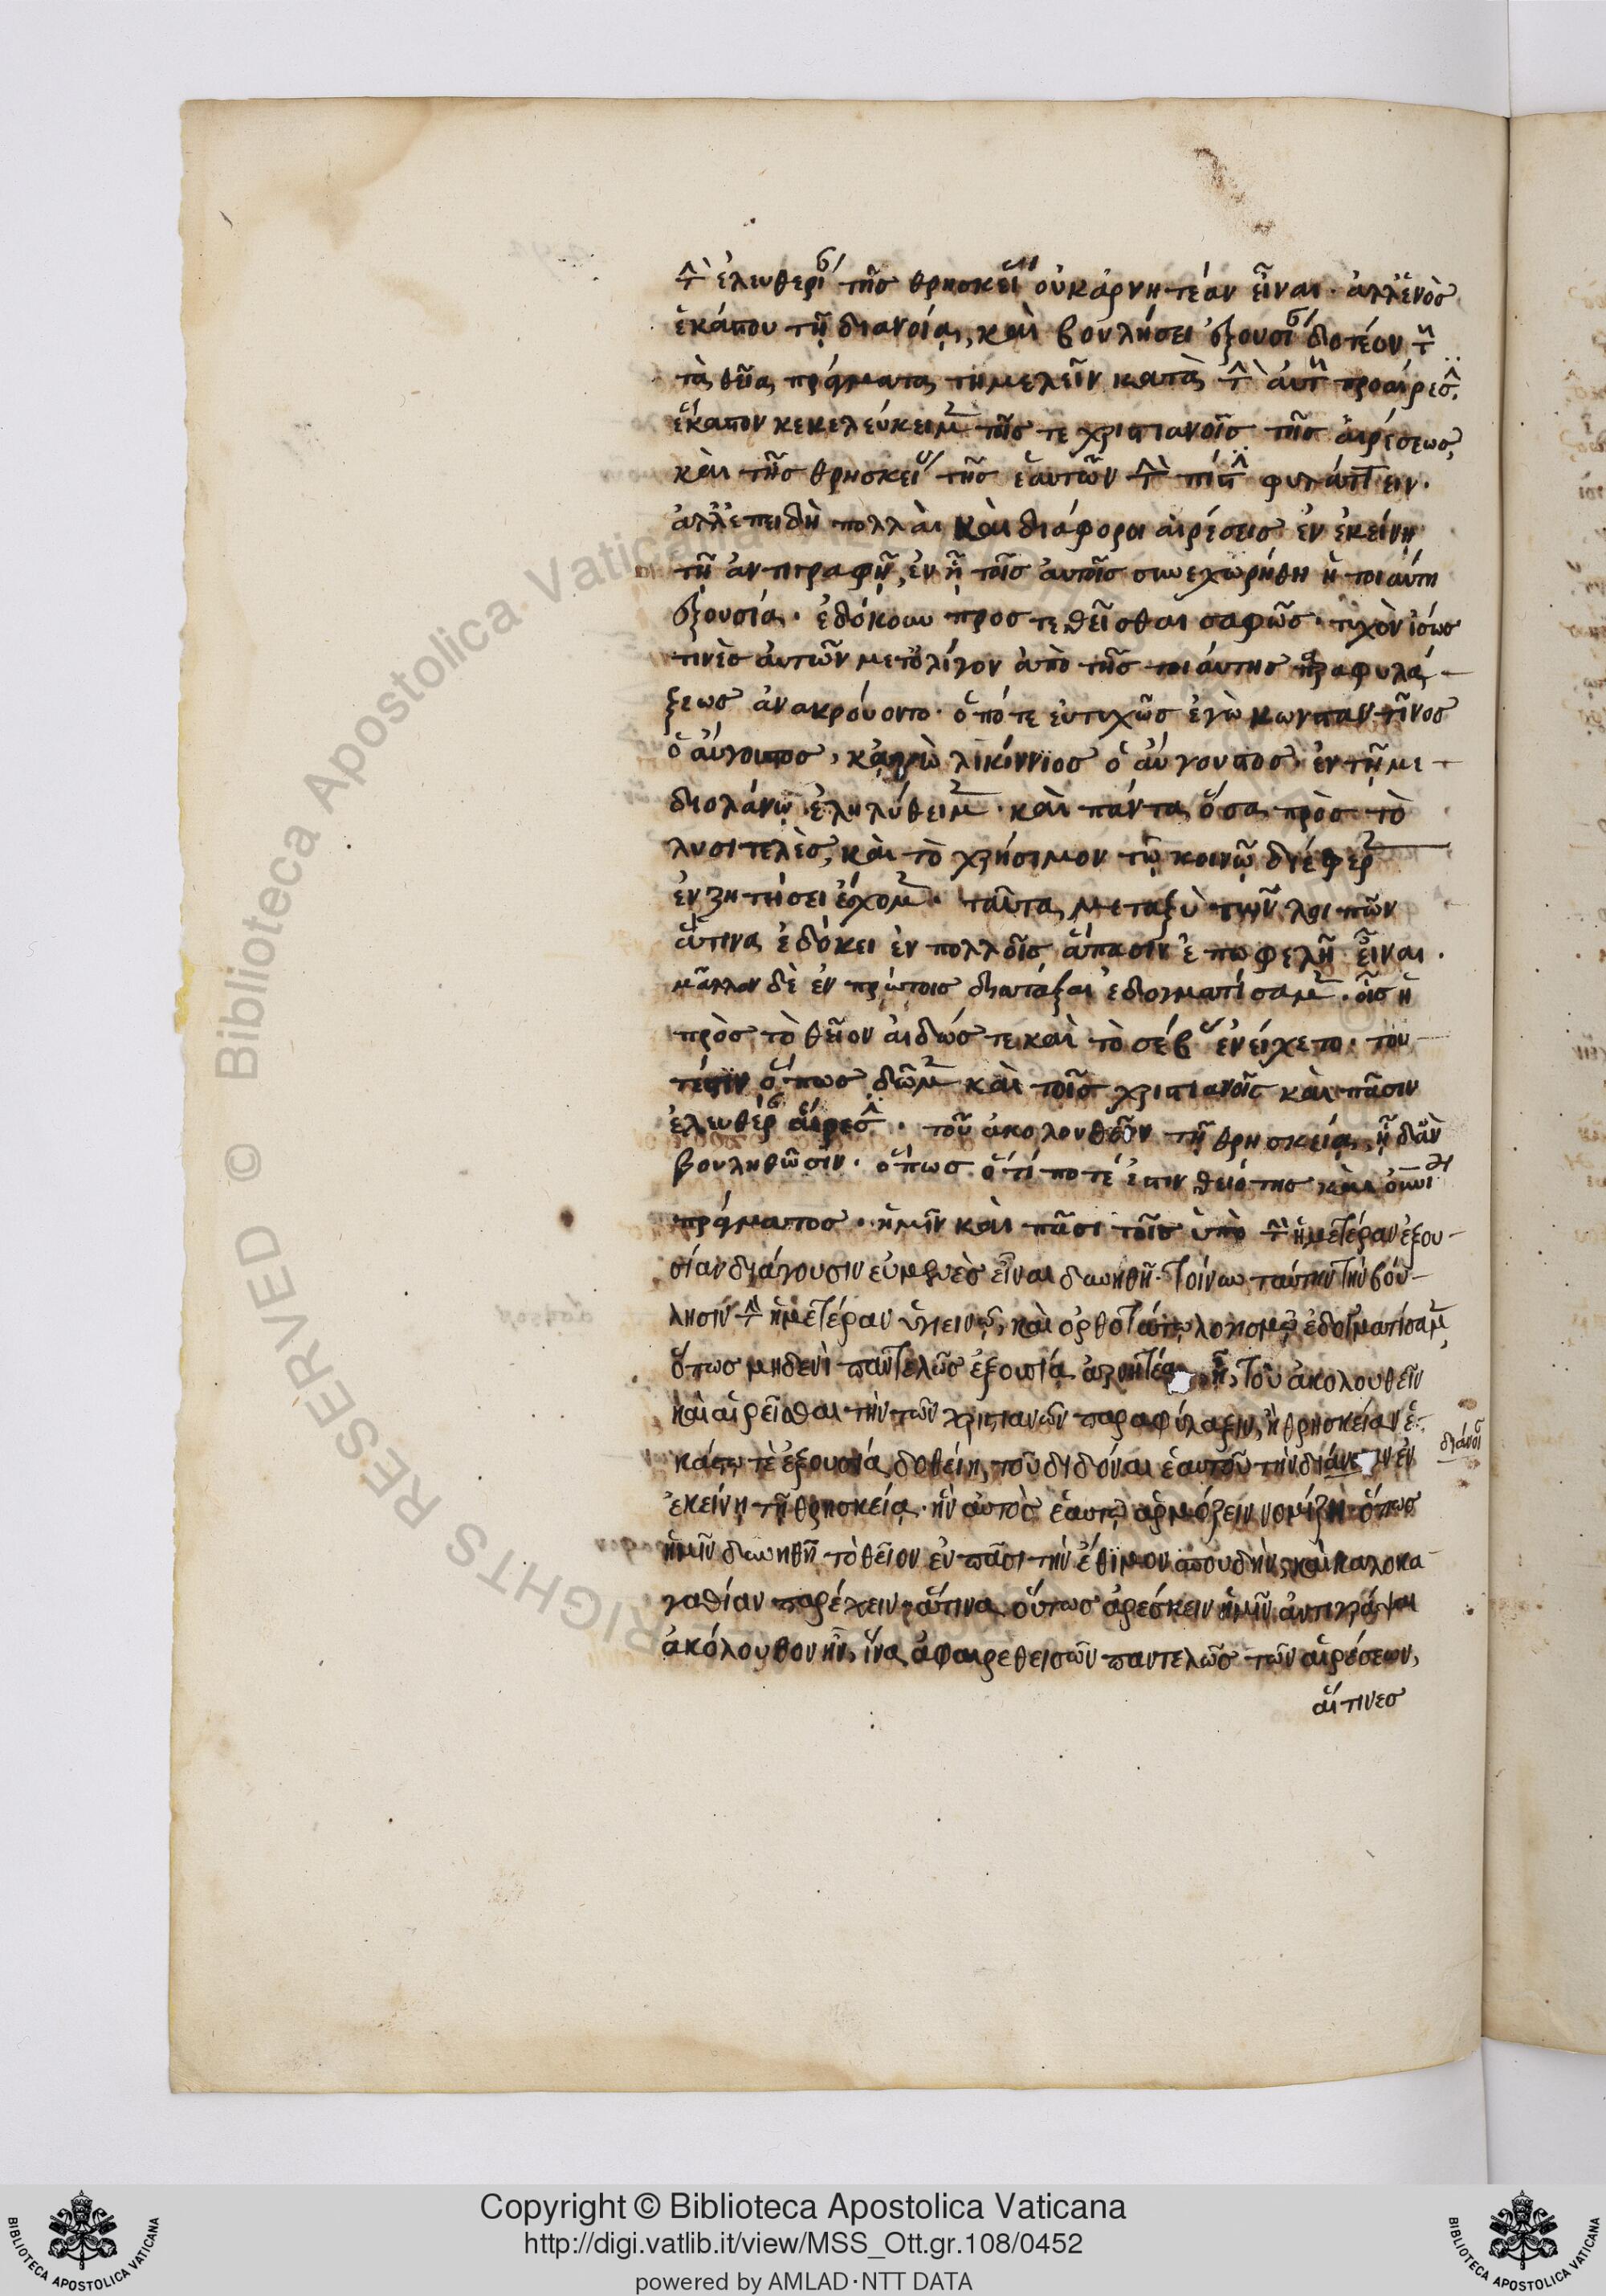 τὴν ἐλευθερίαν τῆς θρησκείας οὐκ ἀρνητέαν εἶναι· ἀλλ' ἑνὸς
ἑκάστου τῇ διανοίᾳ, καὶ βουλήσει ἐξουσίαν δοτέον τοῦ
τὰ θεῖα πράγματα τημελεῖν κατὰ τὴν αὐτοῦ προαίρεσιν.
ἕκαστον κεκελεύκειμεν τοῖς τε χριστιανοῖς τῆς αἱρέσεως,
καὶ τῆς θρησκείας τῆς ἑαυτῶν τὴν πίστιν φυλάττειν.
ἀλλ' ἐπειδὴ πολλαὶ καὶ διάφοροι αἱρέσεις ἐν ἐκείνῃ
τῇ ἀντιγραφῇ, ἐν ᾗ τοῖς αὐτοῖς συνεχωρήθη ἡ τοιαύτη
ἐξουσία· ἐδόκουν προστεθεῖσθαι σαφῶς· τυχὸν ἴσως
τινὲς αὐτῶν μετ' ὀλίγον ἀπὸ τῆς τοιαύτης παραφυλά-
ξεως ἀνακρούοντο. ὁπότε εὐτυχῶς ἐγὼ κωνσταντῖνος
ὁ αὔγουστος, κἀγὼ λικίννιος ὁ αὔγουστος, ἐν τῇ με-
διολάνῳ ἐληλύθειμεν· καὶ πάντα ὅσα πρὸς τὸ
λυσιτελὲς, καὶ τὸ χρήσιμον τῷ κοινῷ διέφερεν
ἐν ζητήσει ἔσχομεν· ταῦτα μεταξὺ τῶν λοιπῶν
ἅτινα ἐδόκει ἐν πολλοῖς ἅπασιν ἐπωφελῆ εἶναι.
μᾶλλον δὲ ἐν πρώτοις διατάξαι ἐδογματίσαμεν. οἷς ἡ
πρὸς τὸ θεῖον αἰδώς τε καὶ τὸ σέβας ἐνείχετο. του-
τέστιν ὅπως δῶμεν καὶ τοῖς χριστιανοῖς καὶ πᾶσιν
ἐλευθέραν αἵρεσιν. τοῦ ἀκολουθεῖν τῇ θρησκείᾳ, ᾗ δ' ἂν
βουληθῶσιν. ὅπως ὅτί ποτέ ἐστιν θειότης καὶ οὐρανίου
πράγματος. ἡμῖν καὶ πᾶσι τοῖς ὑπὸ τὴν ἡμετέραν ἐξου-
σίαν διάγουσιν εὐμενὲς εἶναι δυνηθῇ. τοίνυν ταύτην τὴν βού-
λησιν τὴν ἡμετέραν ὑγιεινῷ, καὶ ὀρθοτάτῳ λογισμῷ ἐδογματίσαμεν,
ὅπως μηδενὶ παντελῶς ἐξουσία ἀρνητέα ᾖ, τοῦ ἀκολουθεῖν
καὶ αἱρεῖσθαι τὴν τῶν χριστιανῶν παραφύλαξιν, ἢ θρησκείαν ἑ-
κάστῳ τὲ ἐξουσία δοθείη, τοῦ διδόναι ἑαυτοῦ τὴν διάνε ν ἐν
διάνοι
ἐκείνῃ τῇ θρησκείᾳ. ἣν αὐτὸς ἑαυτῷ ἁρμόζειν νομίζῃ ὅπως
ἡμῖν δυνηθῇ τὸ θεῖον ἐν πᾶσι τὴν ἔθιμον σπουδὴν, καὶ καλοκα-
γαθίαν παρέχειν, ἅτινα οὕτως ἀρέσκειν ἡμῖν ἀντιγράψαι
ἀκόλουθον ἦν, ἵνα ἀφαιρεθεισῶν παντελῶς τῶν αἱρέσεων,
αἵτινες
© Biblioteca Apostolica Vaticana
RIGHTS RESERVED
Copyright © Biblioteca Apostolica Vaticana
http://digi.vatlib.it/view/MSS_Ott.gr.108/0452
powered by AMLAD·NTT DATA
BIBLIOTECA APOSTOLICA VATICANA
BIBLIOTECA APOSTOLICA VATICANA